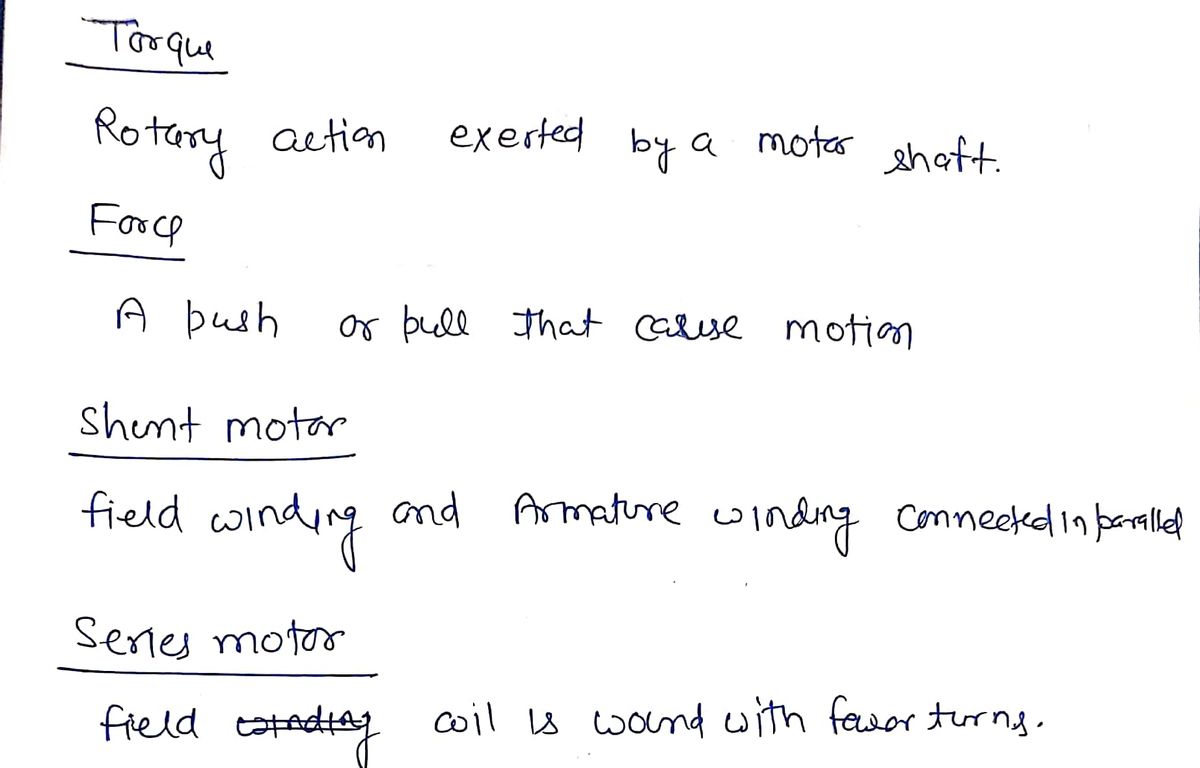 Torque
Rotary action exerted by a motor shaft.
Force
A push or pull that cause motion
Shunt motor
field winding and Armature winding connected in parallel
Series motor
field winding coil is wound with fewer turns.